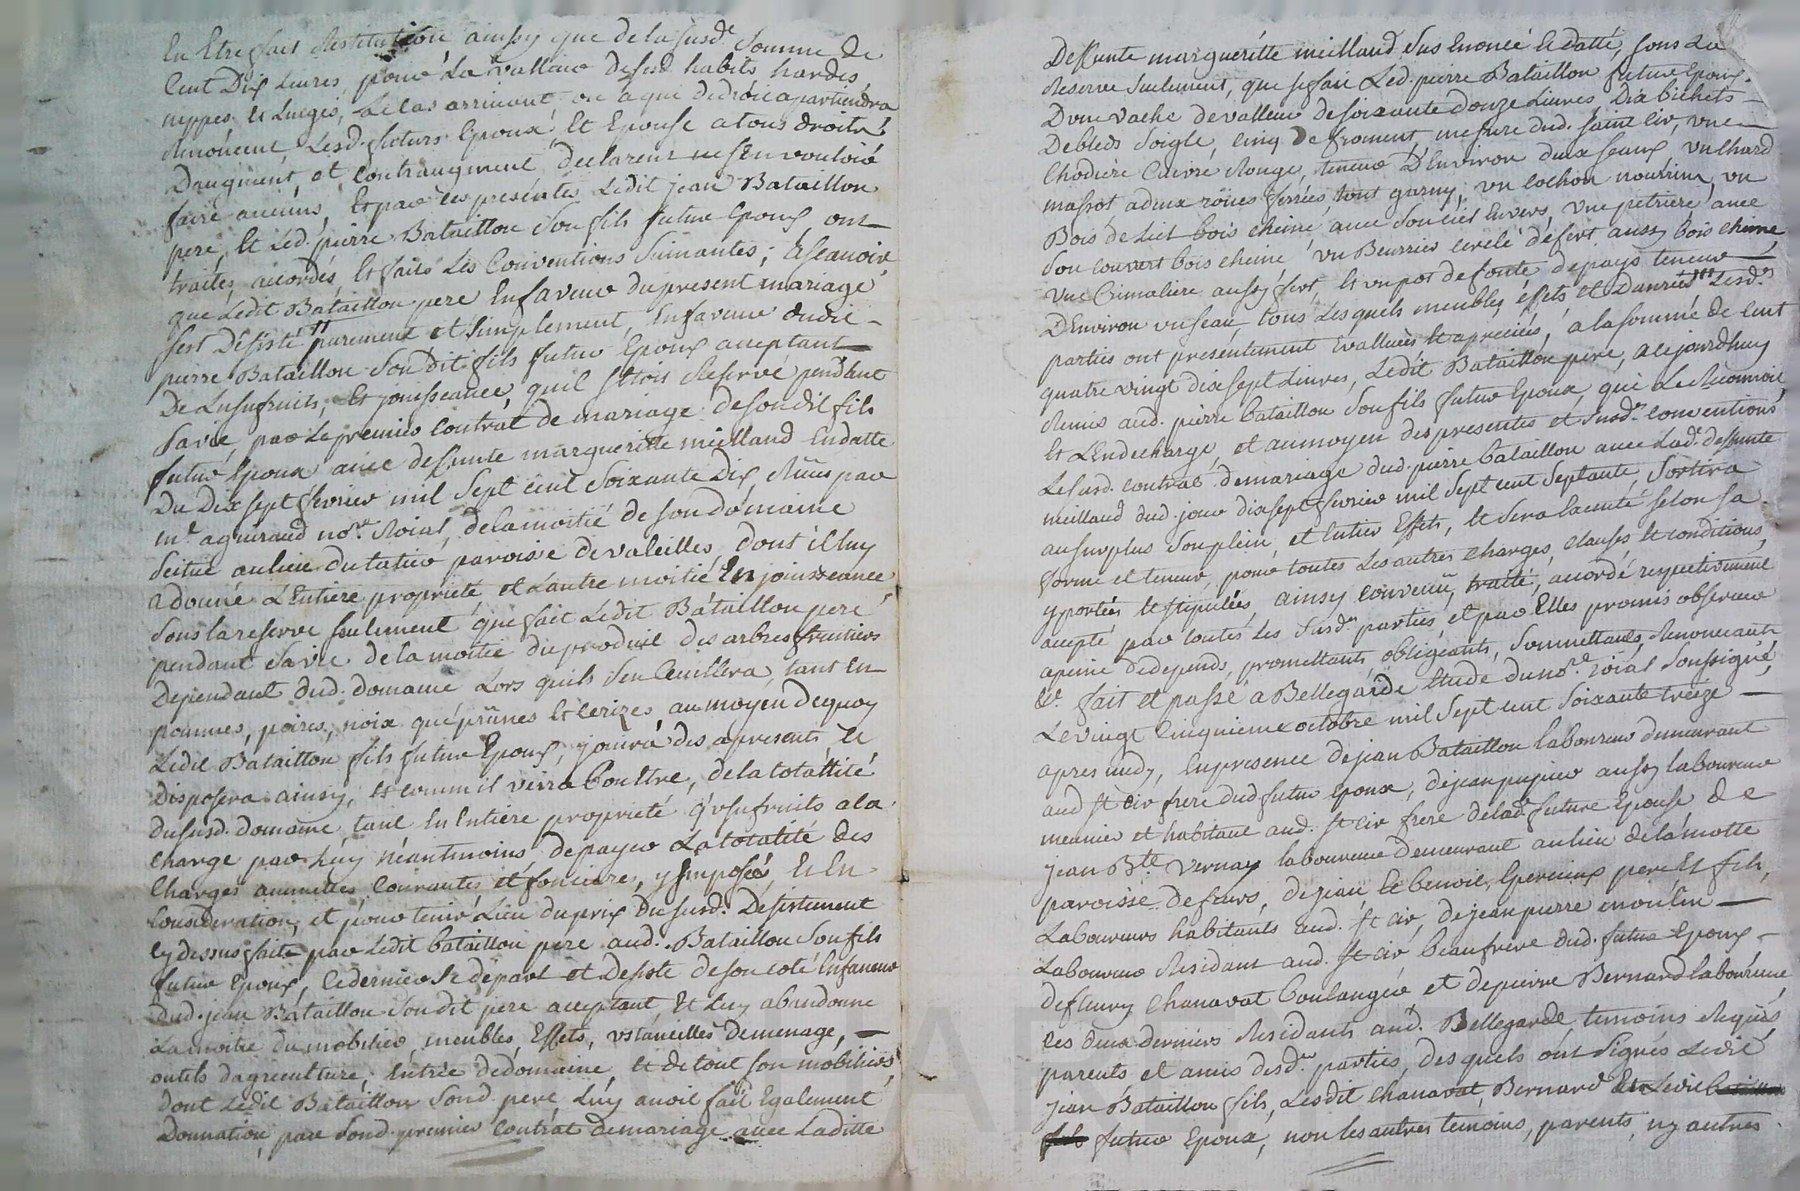 En Etre fait Restitution ainsy que de la susd.e Somme de
Cent Dix Livres, pour La valleur desusd. habits, hardes
nippes et Linges, Le Cas arrivant ou a qui de droit apartiendra
Renoncent, Lesd. futurs Epoux Et Epouse a tous droits
Daugment, et Contraugment, declarent ne s'En vouloir
faire aucuns, Et par ces presentes Ledit jean Bataillon
pere, Et Led. pierre Bataillon Son fils futur Epoux ont
traités, acordés, Et faits Les Conventions Suivantes; Asçeavoir
que Ledit Bataillon pere En faveur du present mariage
s'est Désisté purement et Simplement, En faveur dudit
pierre Bataillon Son dit fils futur Epoux aceptant
De Lusufruits, Et jouisseance, quil s'Etoit Réservé pendant
Sa vie, par Le premier contrat de mariage de son dit fils
futur Epoux avec defunte margueritte meilland En datte
Du Dix sept fevrier mil Sept cent Soixante Dix, Reçus par
m.e aguiraud no.re Roial, de la moitié de Son domaine
Scitué au lieu du tatier paroisse de valeilles, dont il luy
a donné L'Entiere proprieté et L'autre moitié En jouisseance
Sous la reserve seulement que fait Ledit Bataillon pere
pendant Sa vie de la moitié du produit des arbres fruitiers
Dependant dud. domaine Lors quils S'en Ceuillera, tant En
pommes, poires, noix que prunes Et Cerizes au moyen de quoy
Ledit Bataillon fils futur Epoux, jouira des a present et
Disposera ainsy, Et comm'il verra bon Etre, de la totallité
Du susd. domaine, tant En Entiere proprieté qu'usufruits a la
Charge par Luy néantmoins de payer La totalité des
Charges annuelles Courantes et foncieres, y Imposés, Et En
Consideration, et pour tenir Lieu du prix Du susd. Desistement
Cy dessus fait par Ledit Bataillon pere aud. Bataillon Son fils
futur Epoux, Ce dernier Se départ et Desiste de son coté En faveur
Dud. jean Bataillon Son dit pere aceptant, Et Luy abandonne
La moitié du mobilier, meubles, Effets, Ustancilles De menage,
outils d'agriculture, Entrée de domaine, Et de tout Son mobiliers
dont Ledit Bataillon Sond. pere Luy avoit fait Egalement
Donnation, par Sond. premier Contrat de mariage avec Laditte
Deffunte margueritte meilland Sus Enoncé Et datté, sous La
Reserve Seulement, que se fait Led. pierre Bataillon futur Epoux
D'une vache de valleur de soixante douze Livres, Dix bichets
De bleds Soigle, Cinq De froment, mesure dud. Saint Cir, une
Chodiere Cuivre Rouge, teneur D'Environ deux Seaux, un Chard
massot a deux roües ferrées, tout garny, un Cochon nourrain, un
Bois de Lict bois cheine avec Son Ciel En vers, une petriere avec
Son couvert bois cheine, un Beurrier cerclé de fert, aussy bois cheine,
une Crimaliere aussy fert, Et un pot de fonte de pays teneur
D'Environ un Seau, tous Lesquels meubles, effets et Danrées Lesd.es
parties ont presentement Evalluées Et apreciés, a la somme de Cent
quatre vingt dix Sept Livres, Ledit Bataillon pere, a cejourdhuy
Remis aud. pierre bataillon Son fils futur Epoux, qui Le Reconnoit
Et L'En decharge, et au moyen des presentes et Susd.es Conventions
Le Susd. contrat de mariage dud. pierre bataillon avec Lad.e defunte
meilland dud. jour dix sept fevrier mil Sept cent Septante, Sortira
au Surplus Son plein, et Entier Effets, Et Sera Executé Selon Sa
forme et teneur, pour toutes Les autres Charges, Clauses Et conditions,
y portées Et Stipulées, ainsy convenü, traité, acordé respectivement
acepté par toutes Les Susd.es parties et par Elles promis observer
a peine de depends, promettants, obligeants, Soumettants, Renonceants
&.a fait et passé a Bellegarde Etude du no.re roial Soussigné
Le vingt Cinquieme octobre mil Sept cent Soixante treize
apres midy, En presence de jean Bataillon laboureur demeurant
aud. St Cir frere dud. futur Epoux, de jean pupier aussy laboureur
meunier et habitant aud. St Cir frere de lad.e future Epouse de
jean B.te Vernay laboureur demeurant au lieu de la motte
paroisse de feurs, de jean Et benoit Epercieux pere Et fils,
Laboureurs habitants aud. St Cir, de jean pierre moulin
Laboureur Residant aud. St Cir beau frere dud. futur Epoux
de fleury Chanavat boulangér et de pierre Bernard laboureur
Ces deux Derniers Residants aud. Bellegarde, temoins Requis
parents et amis desd.es parties, des quels ont Signés Ledit
jean Bataillon fils, Lesdit Chanavat, Bernard Et Ledit
futur Epoux, non les autres temoins, parents, ny autres